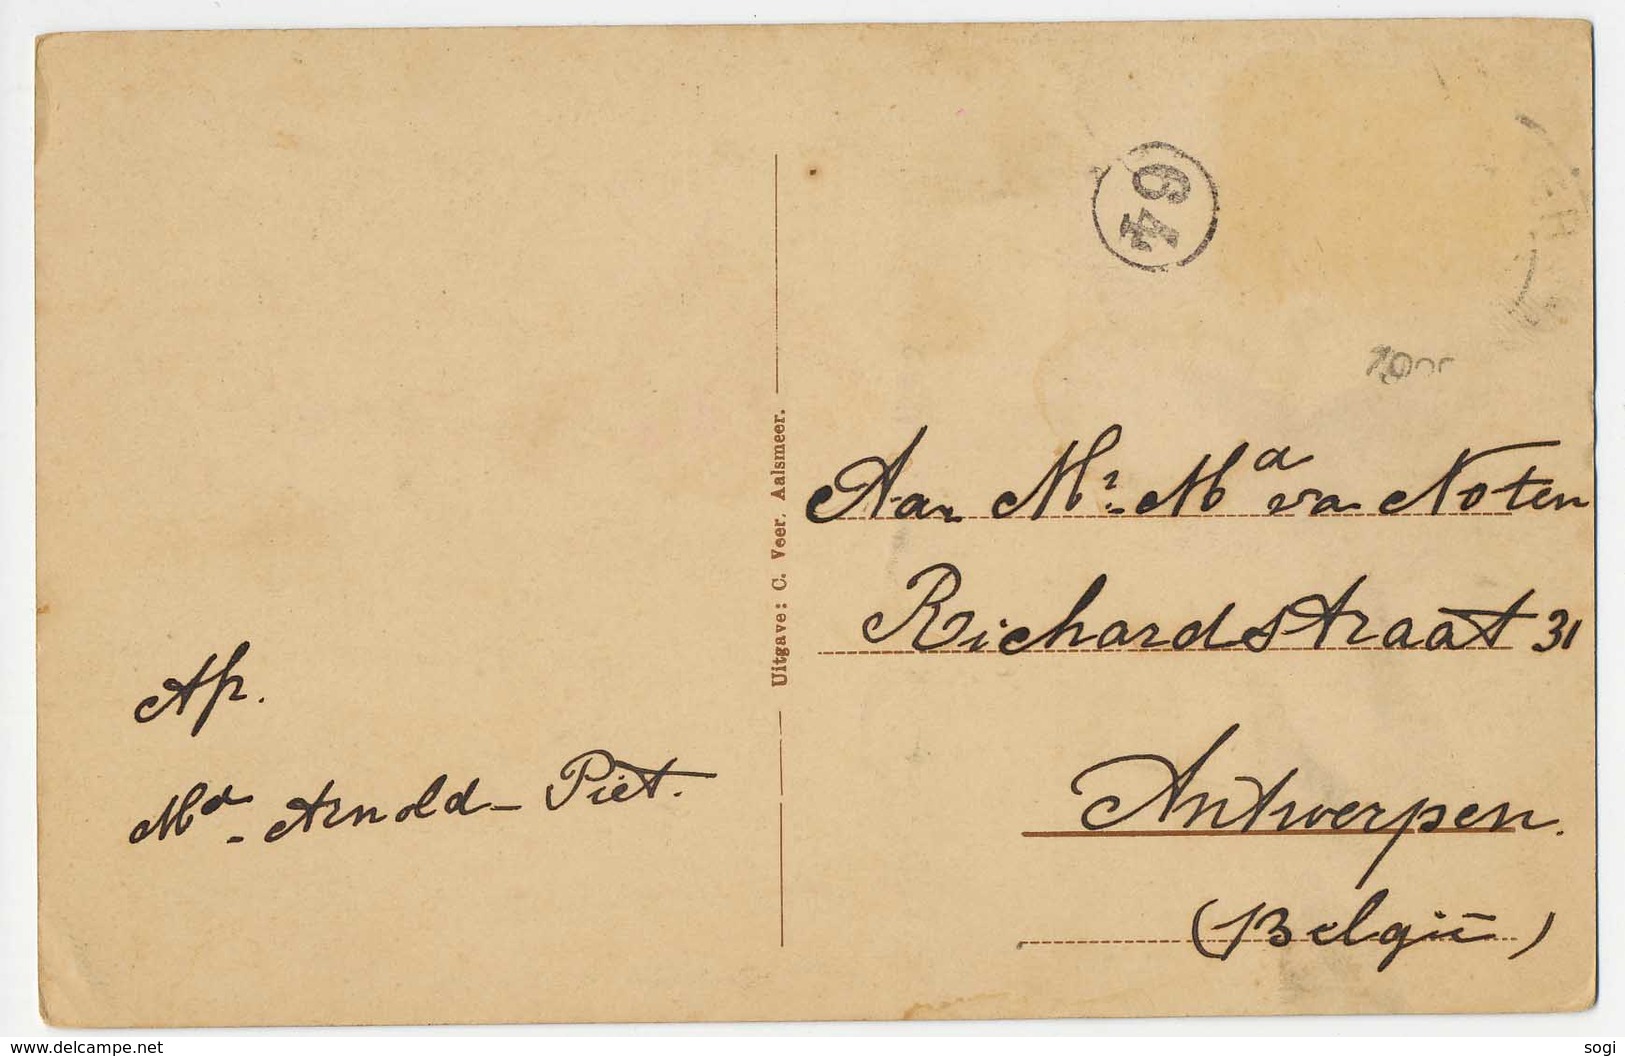 64
1900
Aan Mr. Md van Noten
Richardstraat 31
Antwerpen.
(België)
Uitgave: C. Veer, Aalsmeer.
Af.
Md - Arnold - Piet.
www.delcampe.net
sogi